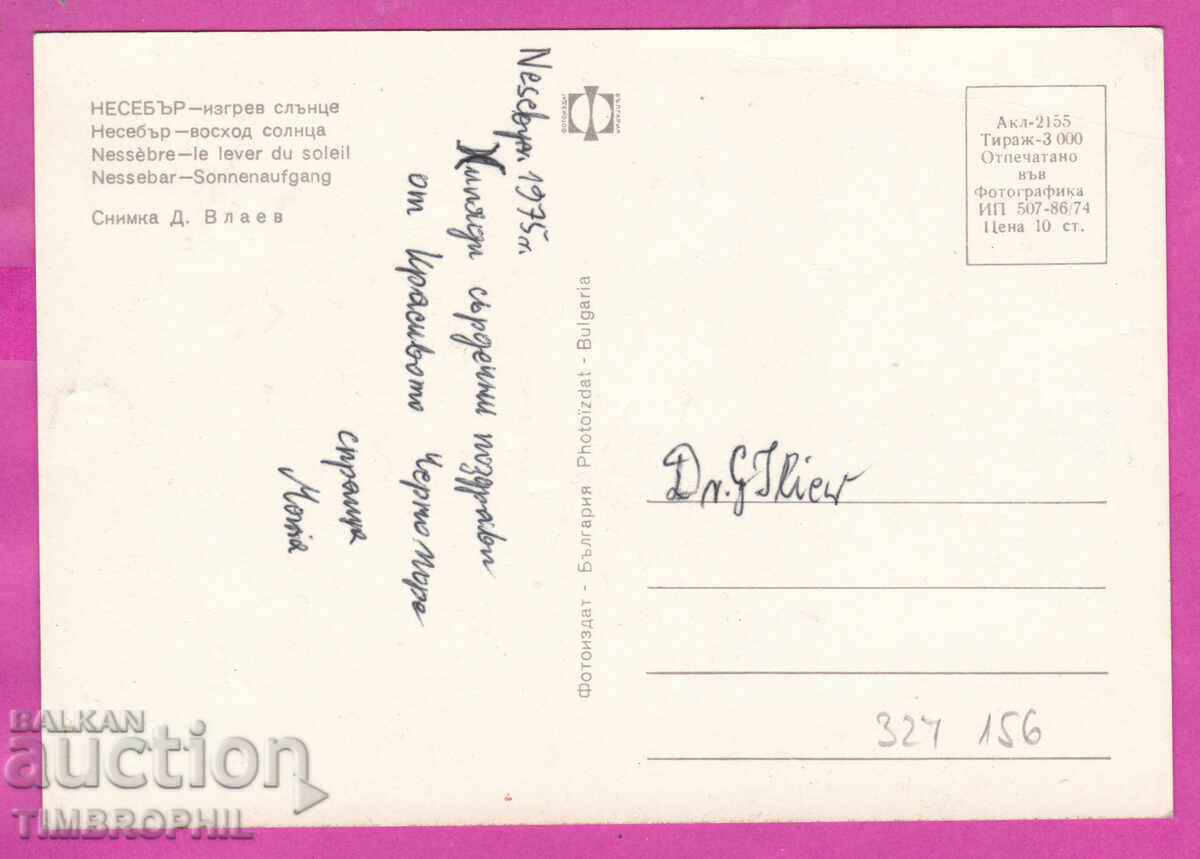 НЕСЕБЪР—изгрев слънце
Несебър—восход солнца
Nessèbre—le lever du soleil
Nessebar—Sonnenaufgang
Снимка Д. Влаев
1975 г.
Хиляди сърдечни поздрави
от красивото Черно море
ФОТОИЗДАТ
БЪЛГАРИЯ
Фотоиздат - България Photoïzdat - Bulgaria
Акл-2155
Тираж-3 000
Отпечатано
във
Фотографика
ИП 507-86/74
Цена 10 ст.
Dr. G Iliew
327 156
BALKAN
auction
TIMBROPHIL